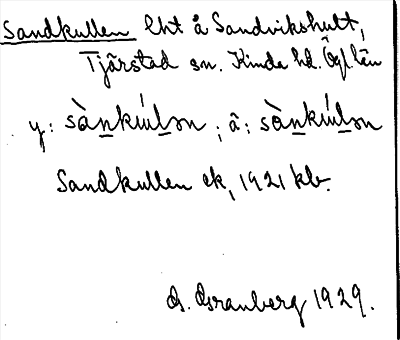 Sandkullen lht å Sandvikshult,
Tjärstad sn. Kinda hd. Ögl. län
y: sànkúlən ; ä; sànkúlən
Sandkullen ek, 1921 kb.
G. Granberg 1929.